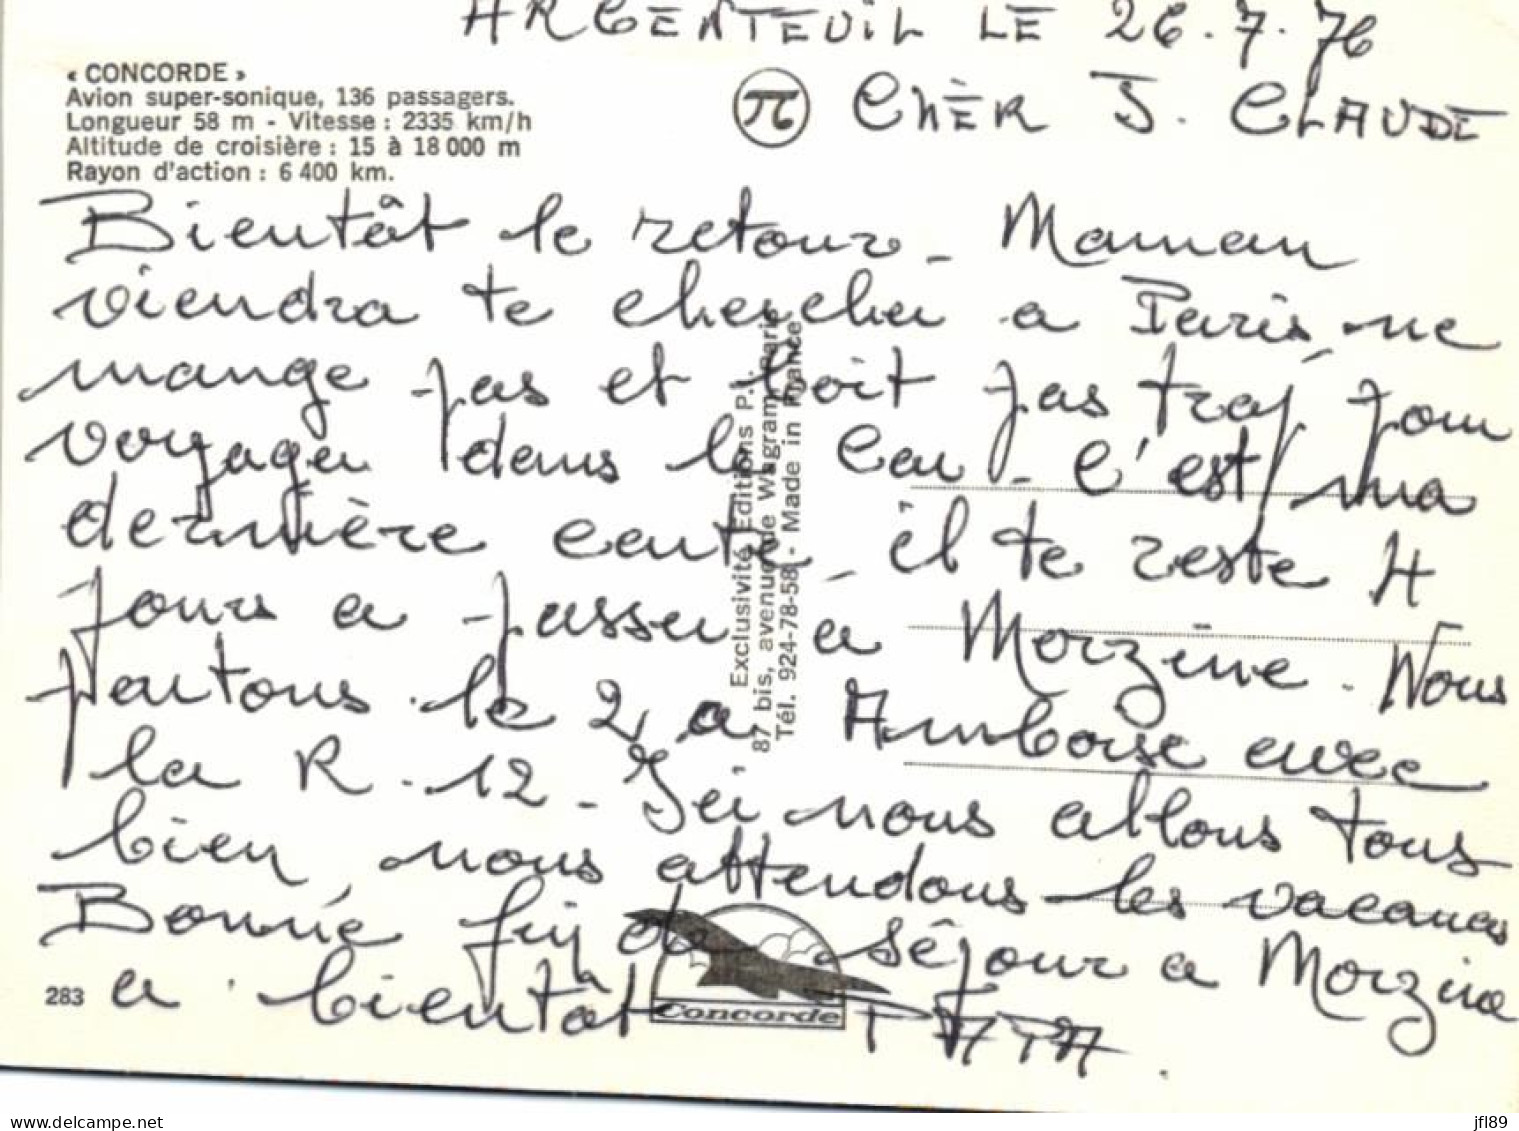 ARGENTEUIL LE 26.7.76
« CONCORDE »
Avion super-sonique, 136 passagers.
Longueur 58 m - Vitesse : 2335 km/h
Altitude de croisière : 15 à 18 000 m
Rayon d'action : 6 400 km.
π
CHÈR J. CLAUDE
Bientôt le retour - Maman
viendra te chercher a Paris, ne
mange pas et boit pas trop, pour
voyager dans le car. C'est ma
dernière carte, il te reste 4
jours a passer à Morzine. Nous
partons le 2 a Amboise avec
la R.12 - Ici nous allons tous
bien, nous attendons les vacances
Bonne fin de séjour a Morzine
a bientôt PAPA.
283
Concorde
Exclusivité Editions P.I. Paris
87 bis, avenue de Wagram
Tél. 924-78-58 - Made in France
delcampe.net
jfl89